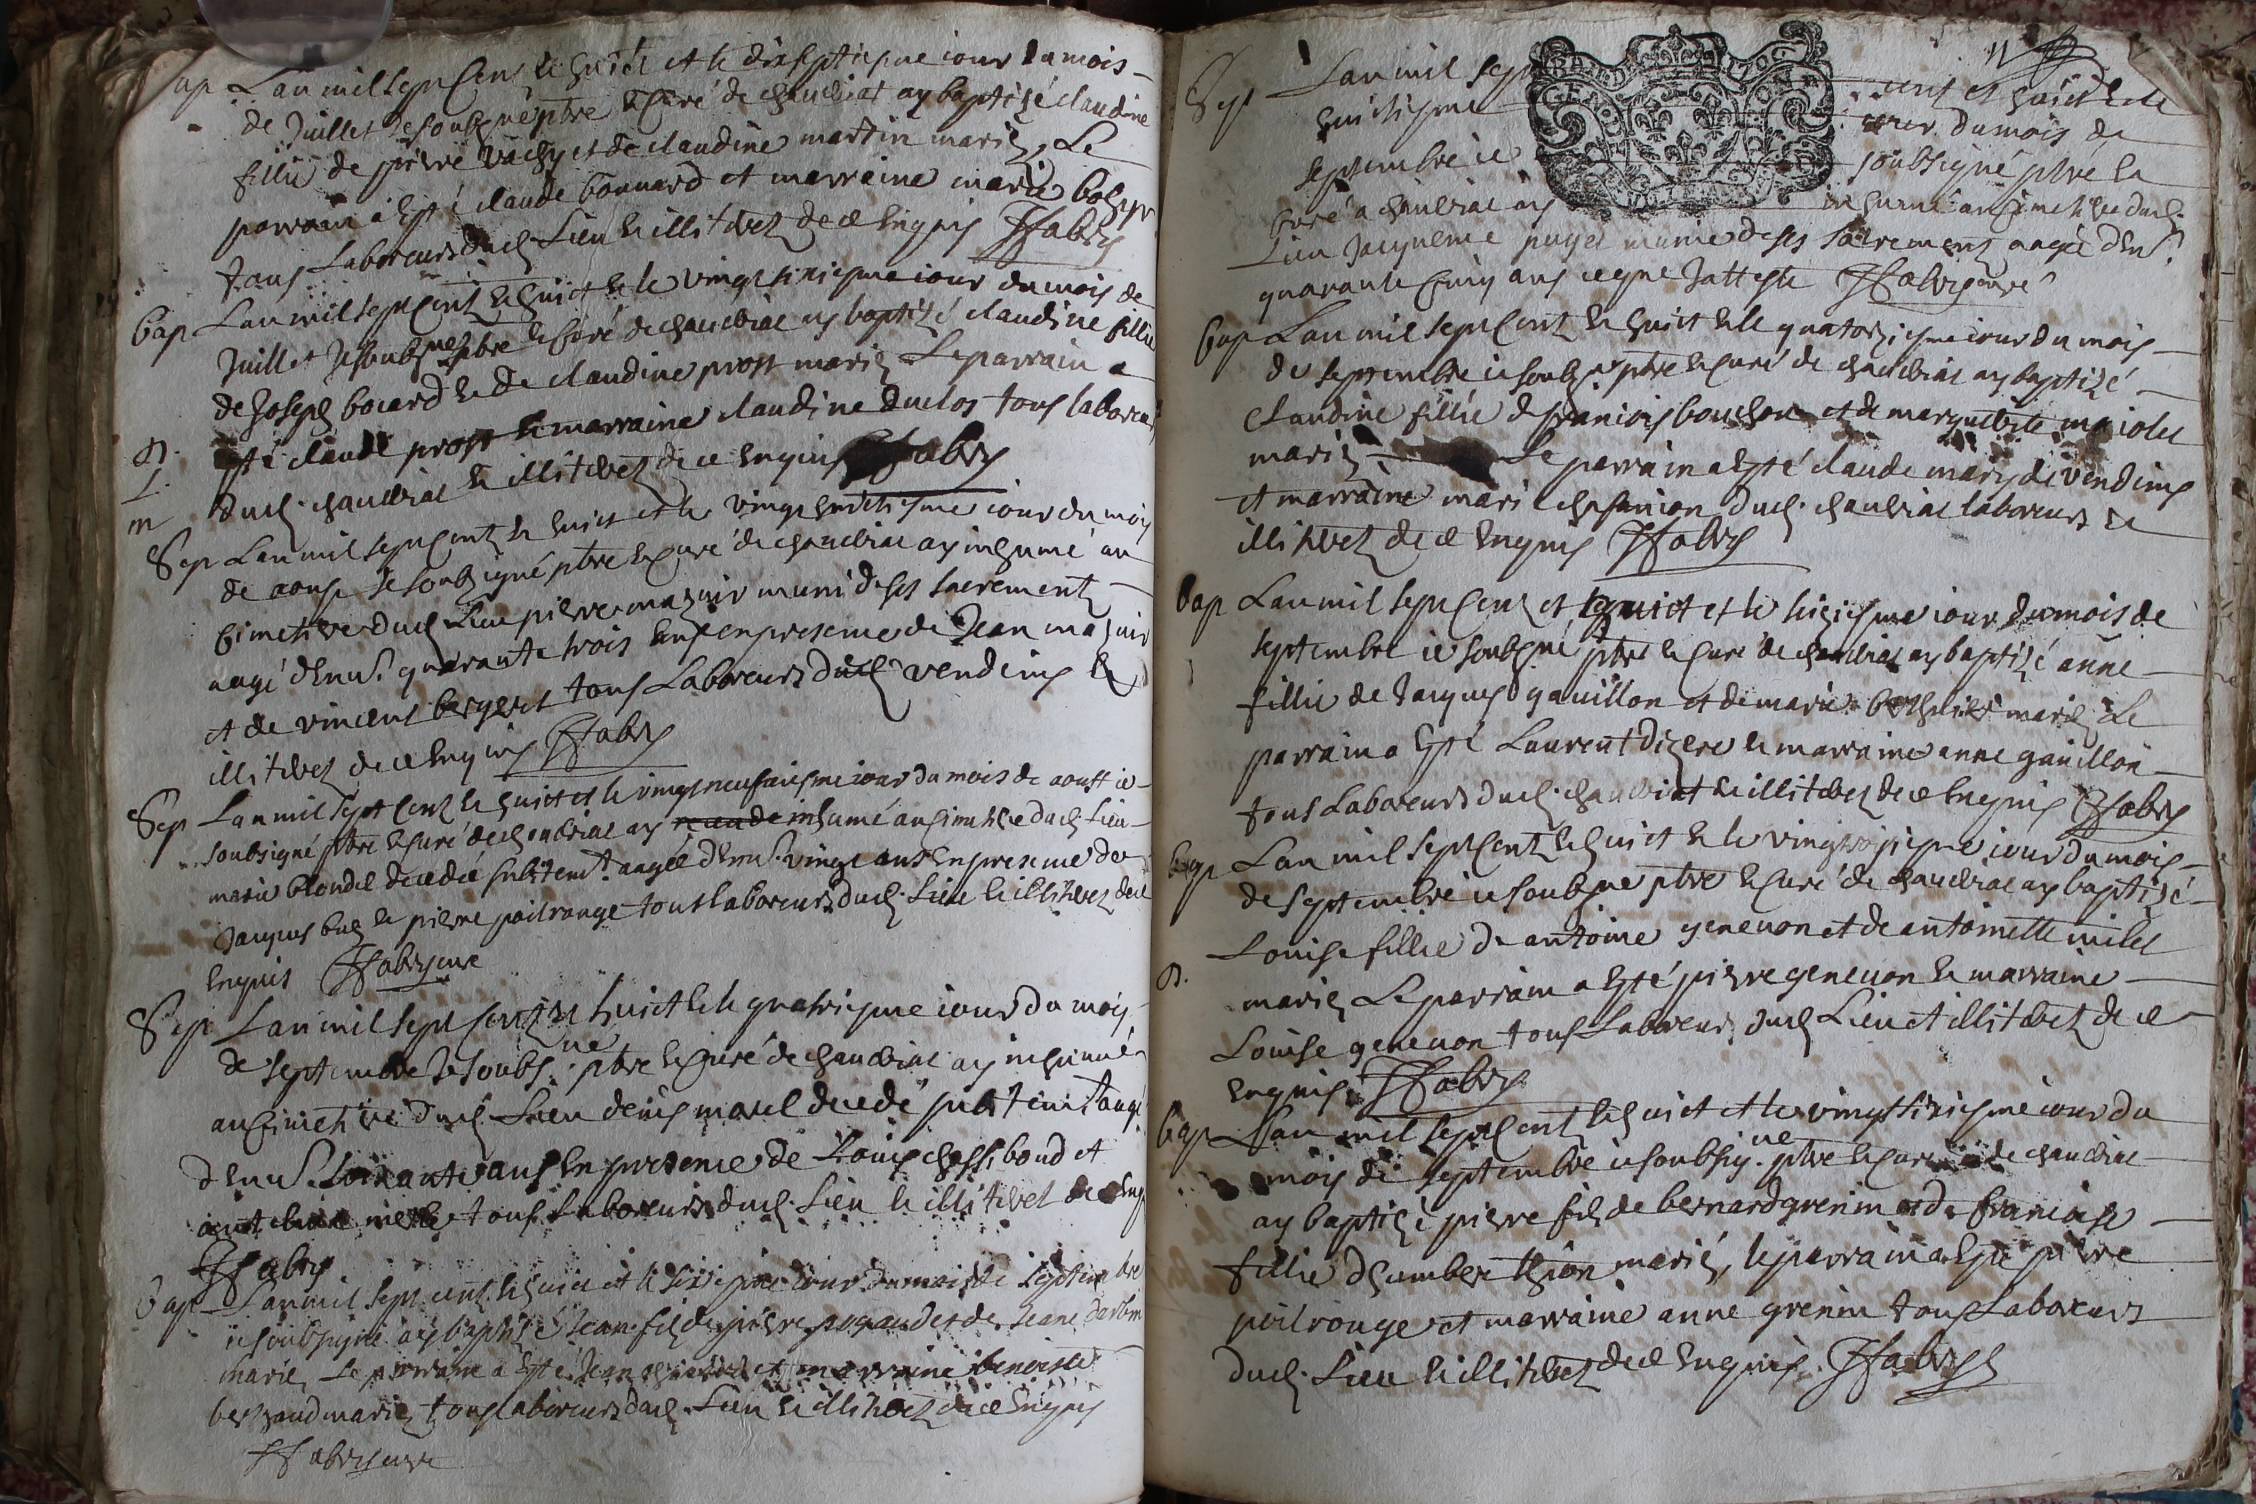 bap Lan mil sept Cent & huict et le dixseptiesme iour du mois
de Juillet Je soubsigné ptre & Curé de chaudiat ay baptizé claudine
fillie de pierre vachy et de claudine martin mariez, Le
parrain a Esté claude bonnard et marraine marie
tous Laboreurs dud. Lieu & illiterez de ce Enquis JFabry
bap Lan mil sept Cent & huict & le vingt sixiesme iour du mois de
Juillet Je soubsne ptre & Curé de chaudiat ay baptizé claudine fillie
de Joseph bocard & de claudine prost mariez Le parrain a
esté claude prost & marraine claudine duclos tous laboreurs
dud. chaudiat & illiterez de ce Enquis JFabry
D.
L.
m
Sep Lan mil sept Cent & huict et le vingt huictiesme iour du mois
de aoust Je soubsigné ptre & Curé de chaudiat ay inhumé au
Cimetiere dud. Lieu pierre mazuir muni de ses sacrementz
aagé denv. quarante trois ans en presence de Jean mazuir
et de vincent bergert tous Laboreurs dud. vendeins &
illiterez de ce Enquis JFabry
Sep Lan mil sept Cent & huict et le vingt neufaiesme iour du mois de aoust ie
soubsigné ptre & Curé de chaudiat ay inhumé au Cimetiere dud. Lieu
marie blondel decedée subitemt. aagée denv. vingt ans En presence de
Jacques buz & pierre poilrouge tous laboreurs dud. Lieu & illiterez de ce
Enquis JFabry curé
Sep Lan mil sept Cent & huict & le quatriesme iour du mois
de septembre Je soubs.né ptre & Curé de chaudiat ay inhumé
au Cimetiere dud. Lieu denis morel decedé subitemt aagé
denv. soixante ans En presence de Louis chassiboud et
tous Laboreurs dud. Lieu & illiterez de ce Enq
JFabry
bap Lan mil sept cent & huict et le sixiesme iour du mois de septembre
ie soubsigné ay baptisé Jean fils de pierre pugaud et de Jeane
mariez Le parrain a Esté Jean et marraine benoiste
berthaud mariez tous laboreurs dud. Lieu & illiterez de ce Enquis
JFabry curé
Sep Lan mil sept cent et huict & le
huictiesme iour du mois de
septembre ie soubsigné ptre &
Curé a chaudiat ay inhumé au Cimetiere dud.
Lieu Jacqueme puget munie de ses sacrements aagée denv.
quarante Cinq ans ce que Jatteste JFabry curé
bap Lan mil sept Cent & huict & le quatorziesme iour du mois
de septembre ie soubsne ptre & Curé de chaudiat ay baptizé
Claudine fillie de francois bouchon et de marguerite maiolet
mariez Le parrain a Esté claude mary de vendeins
et marraine mari chapanion dud. chaudiat laboreurs &
illiterez de ce Enquis JFabry
bap Lan mil sept Cent et huict et le seiziesme iour du mois de
septembre ie soubsne ptre & Curé de chaudiat ay baptizé anne
fillie de Jacques gauillon et de marie mariez Le
parrain a Esté Laurent dizere & marraine anne gauillon
tous Laboreurs dud. chaudiat & illiterez de ce Enquis JFabry
bap Lan mil sept Cent & huict & le vingtroisiesme iour du mois
de septembre ie soubsne ptre & Curé de chaudiat ay baptizé
Louise fillie de antoine geneuon et de antoinette milet
D.
mariez Le parrain a Esté pierre geneuon & marraine
Louise geneuon tous Laboreurs dud. Lieu et illiterez de ce
Enquis JFabry
bap Lan mil sept Cent & huict et le vingt sixiesme iour du
mois de septembre ie soubsig.ne ptre & Curé de chaudiat
ay baptizé pierre fils de bernard grenin et de francoise
fillie dhumber thion mariés, le parrain a Esté pierre
poilrouge et marraine anne grenin tous Laboreurs
dud. Lieu & illiterez de ce Enquis JFabry